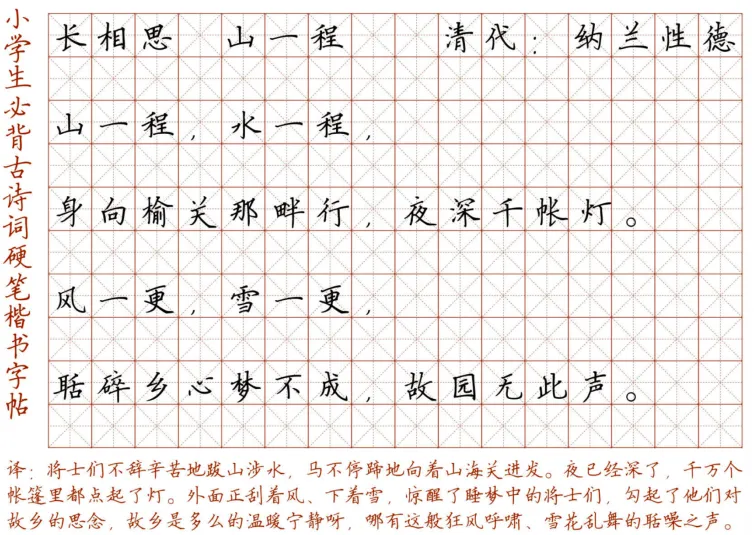 小学生必背古诗词硬笔楷书字帖
长相思 山一程 清代：纳兰性德
山一程，水一程，
身向榆关那畔行，夜深千帐灯。
风一更，雪一更，
聒碎乡心梦不成，故园无此声。
译：将士们不辞辛苦地跋山涉水，马不停蹄地向着山海关进发。夜已经深了，千万个
帐篷里都点起了灯。外面正刮着风、下着雪，惊醒了睡梦中的将士们，勾起了他们对
故乡的思念，故乡是多么的温暖宁静呀，哪有这般狂风呼啸、雪花乱舞的聒噪之声。